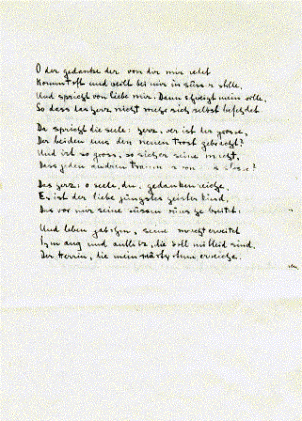 O der gedanke der von dir mir redet
Kommt oft und weilt bei mir in süsser stille.
Und spricht von liebe mir. Dann schweigt mein wille,
So dass das herz nicht mehr sich selbst befehdet.
Da spricht die seele: herz, wer ist der grosse,
Der beiden uns den neuen Trost gebracht?
Und ist so gross, so sicher seine macht,
Dass jeden andren
Das herz: o seele, du, gedankenreiche,
Es ist der liebe jüngstes geisterkind,
Das vor mir seine süssen
Und leben gab ihm, seine macht erweitet
Ihm aug und antlitz, die voll mitleid sind,
Der Herrin, die mein